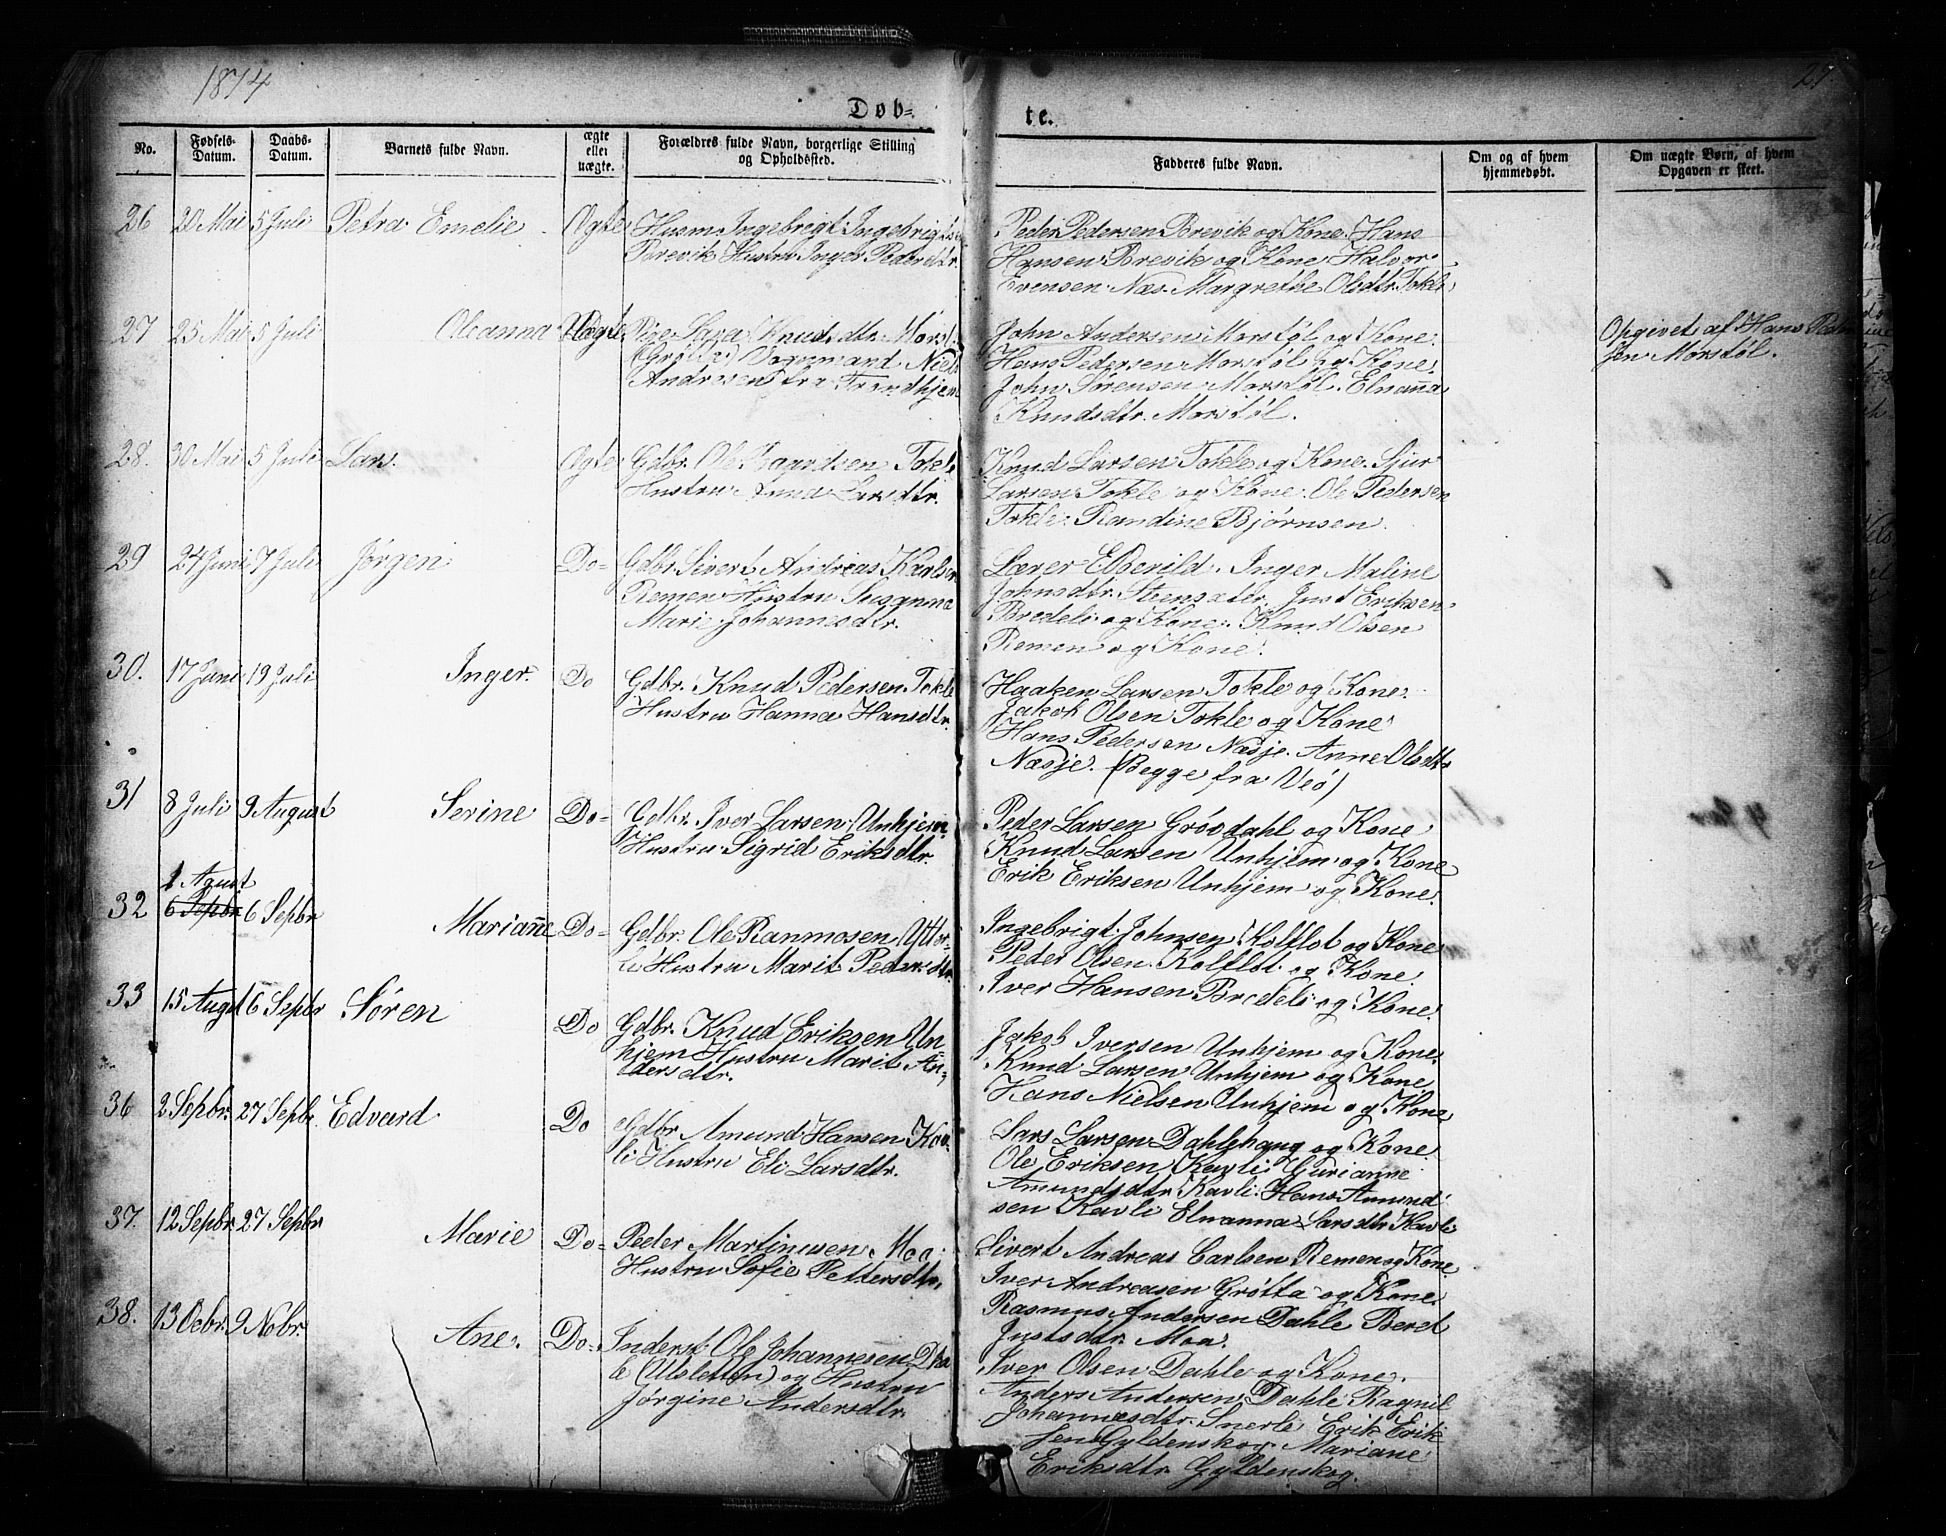 1874
21
Døb=
te.
No.
Fødsels-Datum.
Daabs-Datum.
Barnets fulde Navn.
ægte eller uægte.
Forældres fulde Navn, borgerlige Stilling og Opholdssted.
Fadderes fulde Navn.
Om og af hvem hjemmedøbt.
Om uægte Børn, af hvem Opgaven er skeet.
26 20 Mai 5 Juli Petra Emelie Ægte Husm Ingebregt Ingebrigts
Brevik Hustru Inger Pedersdtr.
Peder Pedersen Brevik og Kone. Hans
Hansen Brevik og Kone Halvor
Evensen Næs. Margrethe Olsdtr. Tokle
27 25 Mai 5 Juli Oleanna Uægte Pige Knudsdtr.
(Grøtta) Niels
Andresen fra Trondhjem
John Andersen Morstøl og Kone.
Hans Pedersen Morstøl og Kone.
John Sørensen Morstøl. Elnan̄a
Knudsdtr. Morstøl.
Opgivet af Hans Peder
sen Morstøl.
28. 30 Mai 5 Juli Lars. Ægte Gdbr. Ole Tokle
Hustru Larsdtr.
Knud Larsen Tokle og Kone. Sjur
Larsen Tokle og Kone. Ole Pedersen
Tokle. Randine Bjørnsen.
29 24 Juni 7 Juli Jørgen Do- Gdbr. Sivert Andreas Karlsen
Remen Hustru Susanna
Marie Johannesdtr.
Lærer Inger Maline
Johnsdtr. Just Eriksen
Bredeli og Kone. Knud Olsen
Remen og Kone.
30. 17 Juni 19 Juli Inger. Do Gdbr. Knud Pedersen Tokle
Hustru Hanna Hansdtr.
Haaken Larsen Tokle og Kone.
Jakob Olsen Tokle og Kone
Hans Pedersen Næsje. Anne Olsdtr
Næsje. (Begge fra Veø)
31 8 Juli 9 August Serine Do- Gdbr. Iver Larsen Unhjem
Hustru Sigrid Eriksdtr.
Peder Larsen Grøvdahl og Kone
Knud Larsen Unhjem og Kone
Erik Eriksen Unhjem og Kone.
1 Agust
32 6 Sepbr 6 Sepbr Marian̄e Do- Gdbr. Ole Rasmosen Utter-
li Hustru Marit Pedersdtr.
Ingebrigt Johnsen Kolflot og Kone
Peder Olsen Kolflot og Kone.
Iver Hansen Bredeli og Kone.
33 15 Augst 6 Sepbr Søren Do Gdbr. Knud Eriksen Un
hjem Hustru Marit An-
dersdtr.
Jakob Iversen Unhjem og Kone.
Knud Larsen Unhjem og Kone
Hans Nielsen Unhjem og Kone
36 2 Sepbr. 27 Sepbr. Edvard Do Gdbr Amund Hansen Kav
li Hustru Eli Larsdtr.
Lars Larsen Dahlehaug og Kone
Ole Eriksen Kavli Gurianne
Amundsdtr Kavli. Hans Amund
sen Kavli Elnanna Larsdtr. Kavli
37. 12 Sepbr. 27 Sepbr Marie Do- Peder Martinusen Moa
Hustru Sofie Pettersdtr.
Sivert Andreas Carlsen Remen og Kone.
Iver Andreasen Grøtta og Kone.
Rasmus Andersen Dahle Beret
Justsdtr. Moa.
38. 13 Ocbr. 9 Nobr. Ane. Do- Inderst Ole Johannesen Dha
le (Ulsletten) og Hustru
Jørgine Andersdtr.
Iver Olsen Dahle og Kone.
Anders Andersen Dahle Ragnil
Johannesdtr. Snerle Erik Erik
sen Gyldenskog. Mariane
Eriksdtr Gyldenskog.